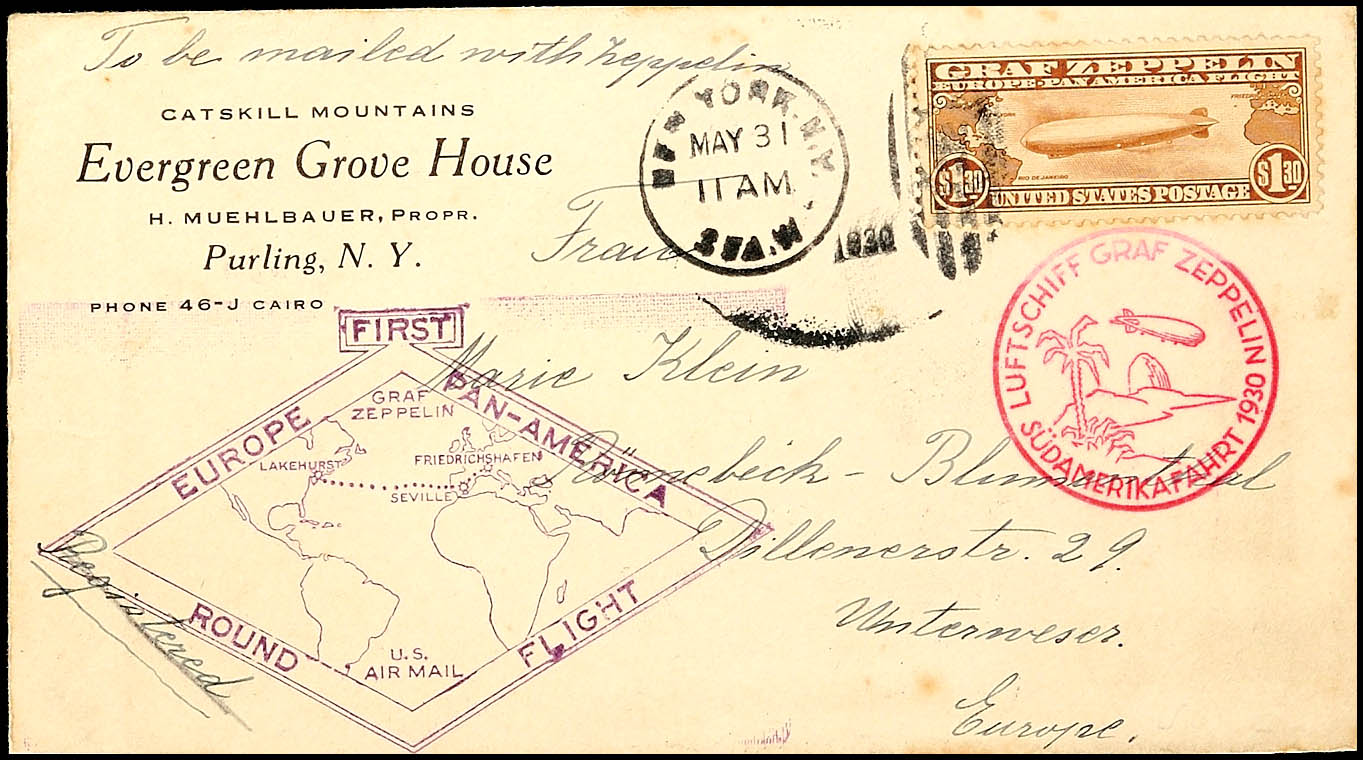 To be mailed with Zeppelin
CATSKILL MOUNTAINS
Evergreen Grove House
H. MUEHLBAUER, PROPR.
Purling, N. Y.
PHONE 46-J CAIRO
NEW YORK, N.Y.
MAY 31
11 AM
STA. W
1930
GRAF ZEPPELIN
EUROPE-PAN AMERICA FLIGHT
RIO DE JANEIRO
$1.30 $1.30
UNITED STATES POSTAGE
LUFTSCHIFF GRAF ZEPPELIN
SÜDAMERIKAFAHRT 1930
Frau
Marie Klein
Rönnebeck - Blumenthal
Dillenerstr. 29.
Unterweser.
Europe.
FIRST
EUROPE PAN-AMERICA
GRAF
ZEPPELIN
LAKEHURST
FRIEDRICHSHAFEN
SEVILLE
ROUND FLIGHT
U.S.
AIR MAIL
Registered